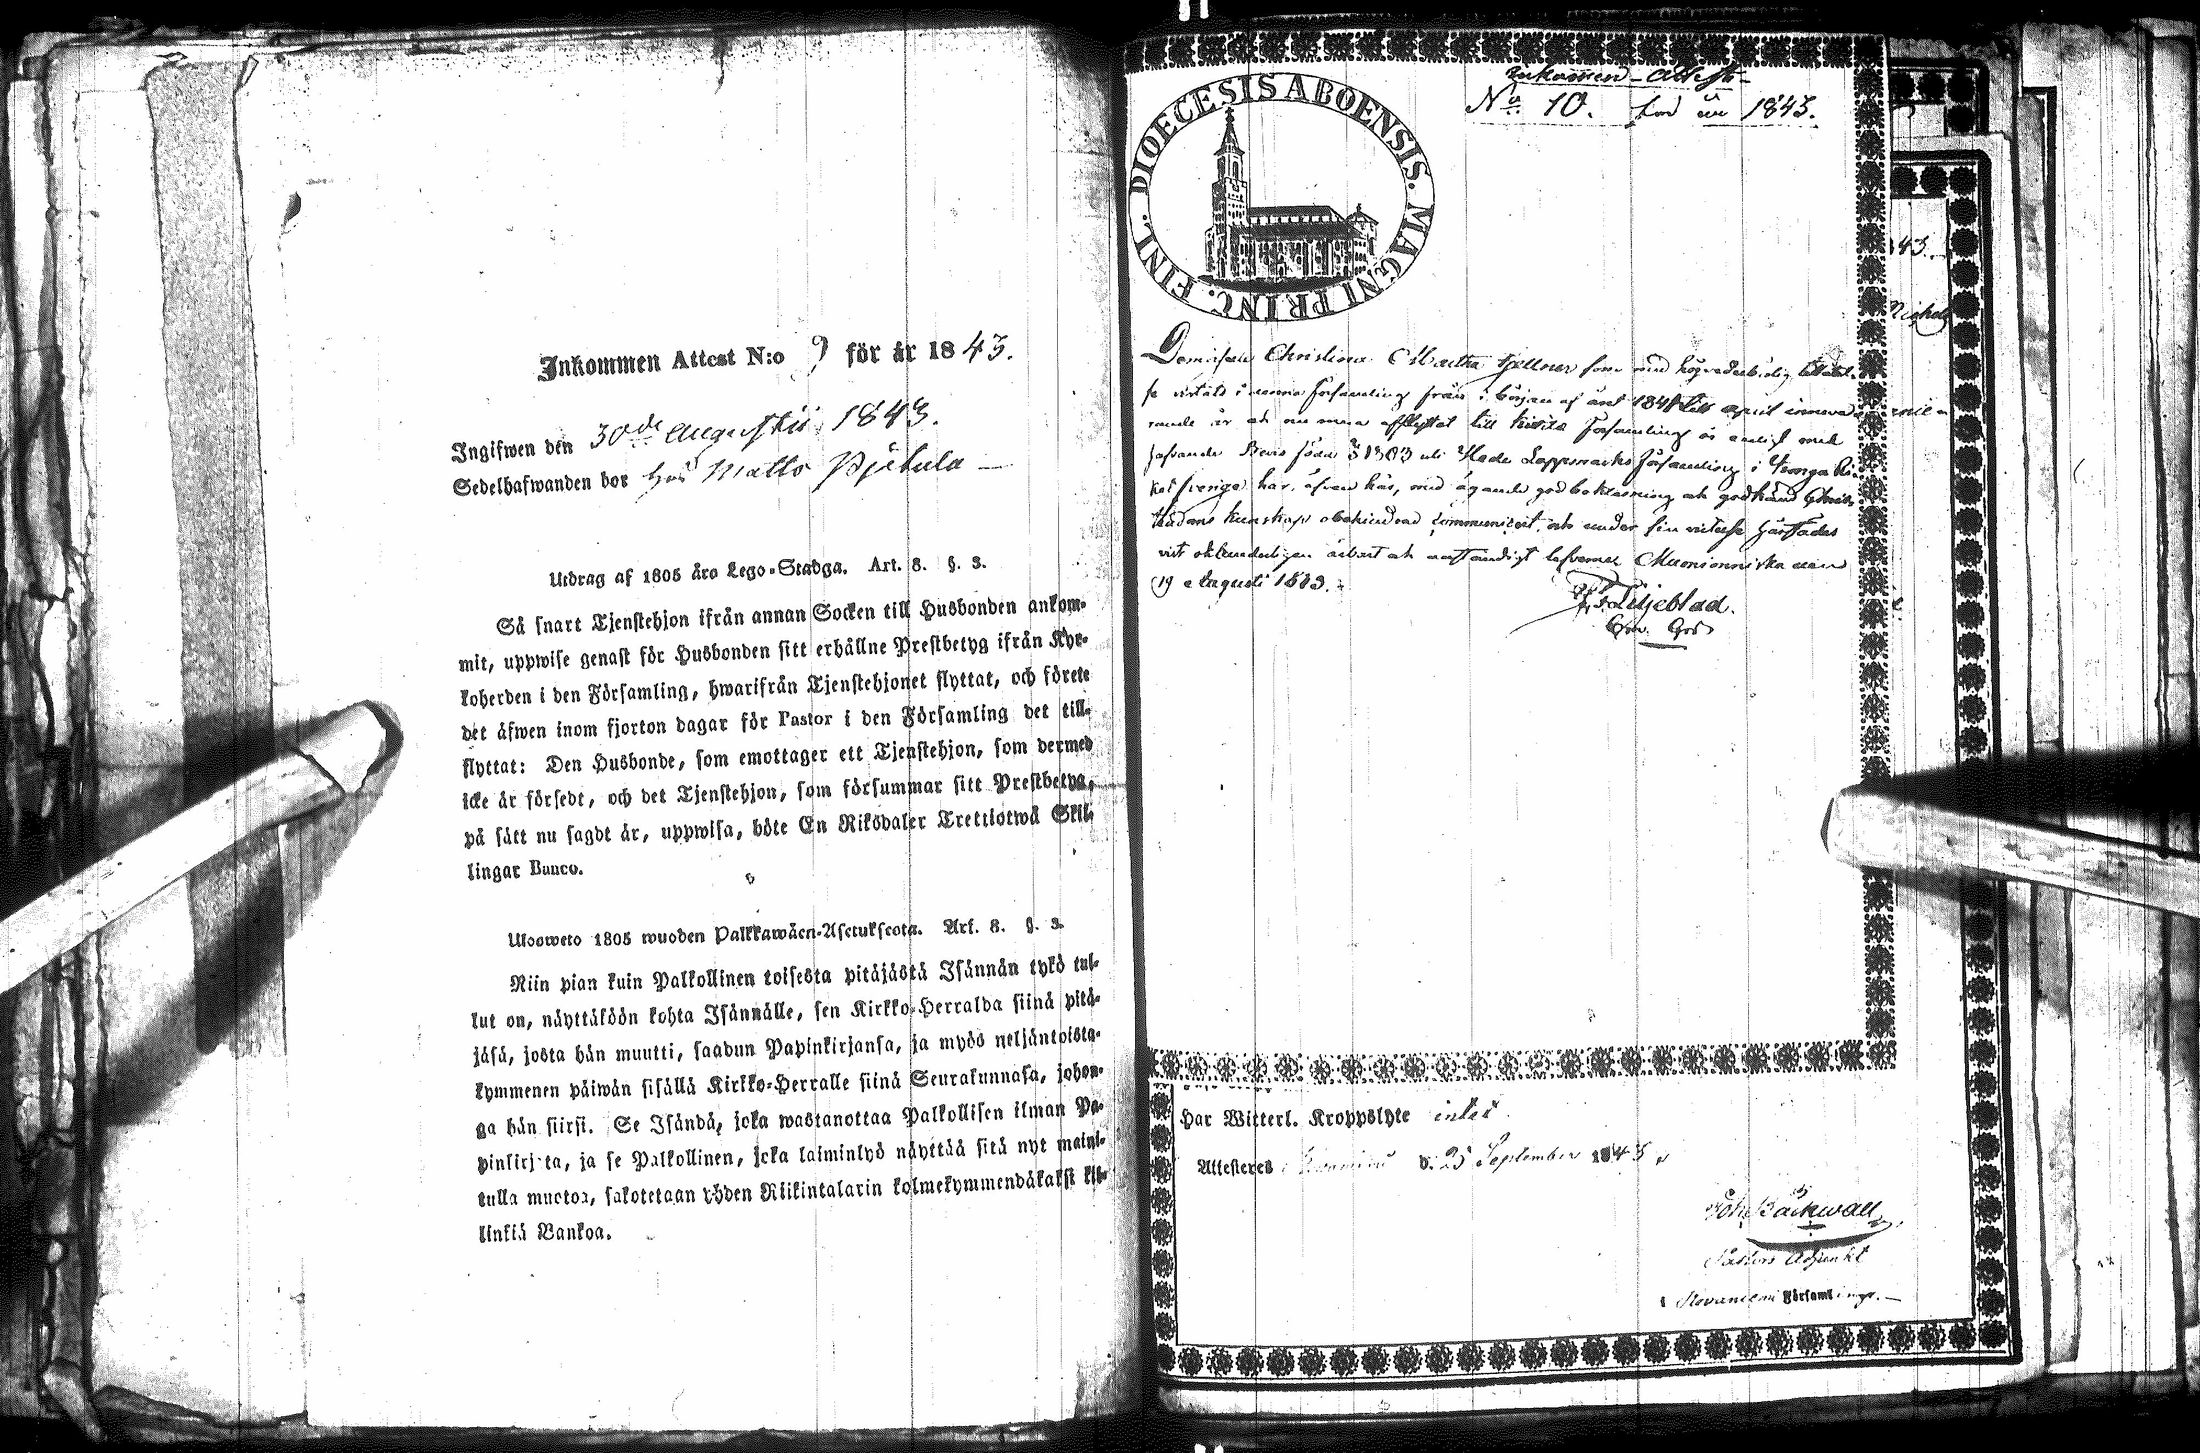 Inkommen Attest N:o 9 för år 1843.
Ingifwen den 30de Augustii 1843.
Sedelhafwanden bor hos Matts
Utdrag af 1805 års Lego-Stadga. Art. 8. §. 3.
Så snart Tjenstehjon ifrån annan Socken till Husbonden ankom-
mit, uppwise genast för Husbonden sitt erhållne Prestbetyg ifrån Kyr-
koherden i den Församling, hwarifrån Tjenstehjonet flyttat, och förete
det äfwen inom fjorton dagar för Pastor i den Församling det till-
flyttat: Den Husbonde, som emottager ett Tjenstehjon, som dermed
icke är försedt, och det Tjenstehjon, som försummar sitt Prestbetyg,
på sätt nu sagdt är, uppwisa, böte En Riksdaler Trettiotwå Skil-
lingar Banco.
Ulosweto 1805 wuoden Palkkawäen-Asetuksesta. Art. 8. §. 3.
Niin pian kuin Palkollinen toisesta pitäjästä Isännän tykö tul-
lut on, näyttäköön kohta Isännälle, sen Kirkko-Herralda siinä pitä-
jäsä, josta hän muutti, saadun Papinkirjansa, ja myös neljäntoista-
kymmenen päiwän sisällä Kirkko-Herralle siinä Seurakunnasa, johon-
ga hän siirsi. Se Isändä, joka wastanottaa Palkollisen ilman Pa-
pinkirjata, ja se Palkollinen, joka laiminlyö näyttää sitä nyt maini-
tulla muotoa, sakotetaan yhden Riikintalarin kolmekymmendäkaksi kil-
linkiä Bankoa.
DIOECESIS ABOENSIS. MAGNI PRINC. FINL.
Inkommen Attest
No 10. för år 1843.
Demoisell Christina Martha Fjellner som med högvederbörlig
se vistats i denna församling från i början af året till April innева-
rande år och nu mera afflyttat till Kittilä Församling är enligt med
hafvande Bevis född Lappmarks församling i
ket Sverige har, äfven här, med ägande god bokläsning och godkänd
kunskap obehindrad communicit och under sin vistelse härstädes
vist ärbart och anständigt lefverne Muonionniska den
19 Augusti 1843.
Liljeblad.
Har Witterl. Kroppslyte intet
Attesteres i d. 25 September 1843
Joh. Bäckwall
Pastors Adjunkt
i Rovaniemi Församlings.